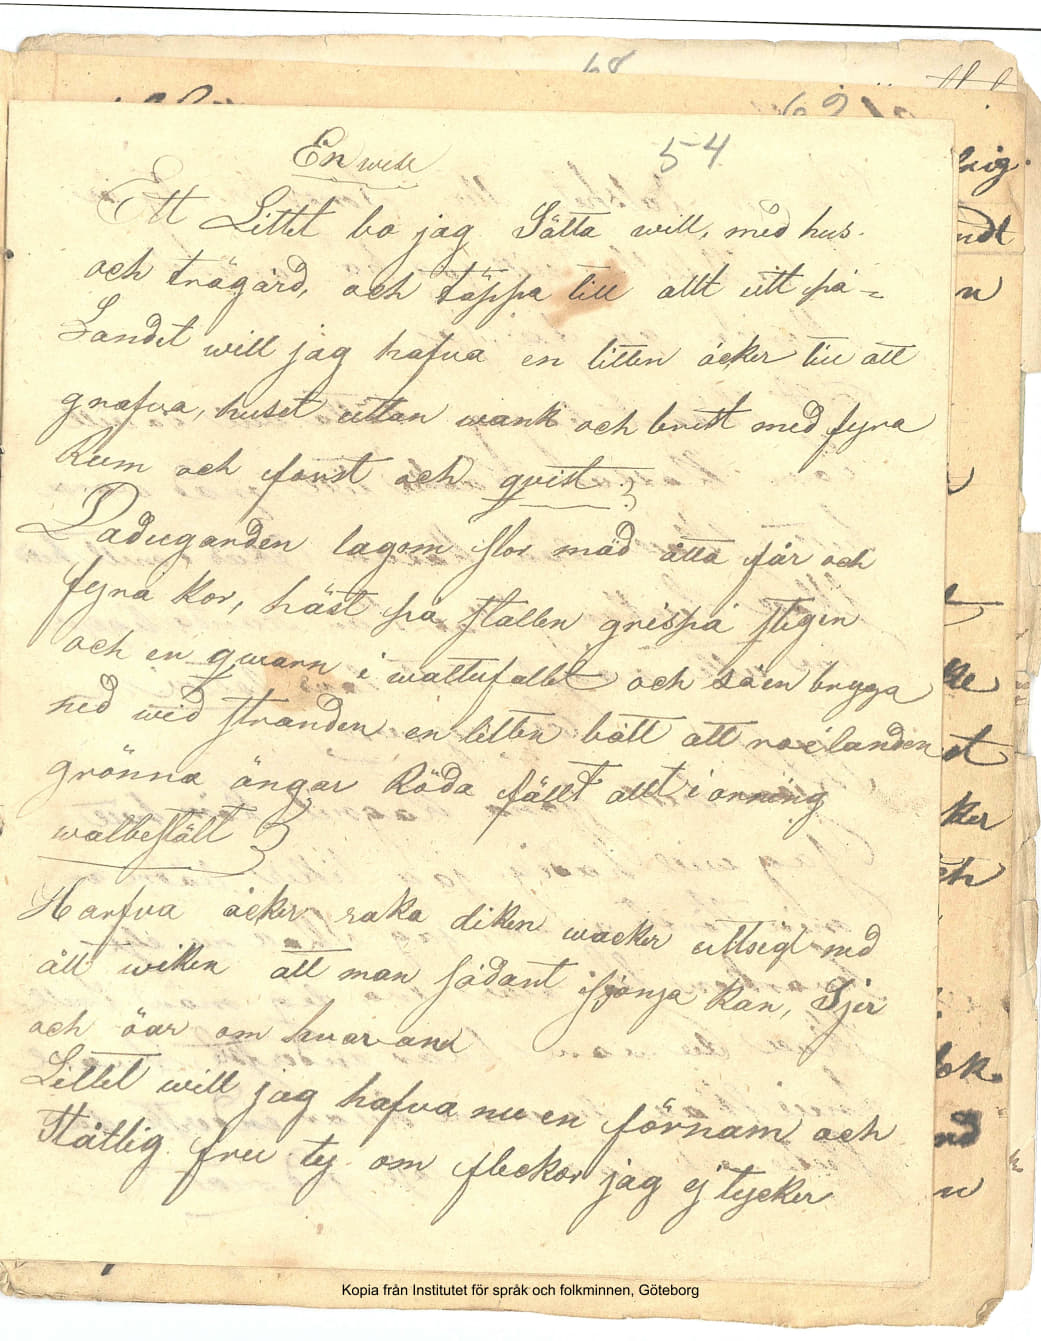 68
62
54
En wise
Ett Littet bo jag Sätta will, med hus
och trägård, och täppa till allt utt på =
Landet will jag hafva en litten åcker till att
grafva, huset uttan wank och brist med fyra
Rum och fönst och qvist
Laduganden lagom stor mäd åtta får och
fyra Kor, häst på stallen gris på stigen
och en qwarn i wattufallet och så en brygga
ned wid stranden en litten bått att ro i landen
grönna ängar Röda fällt allt i orrning
walbestält
Harfva åcker raka diken wacker uttsegt med
ått wiken att man sådant sjönja Kan, Sjer
och öar om hvar ann
Littet will jag hafva nu en förnäm och
Ståtlig fru ty om fleckor jag ej tycker
Kopia från Institutet för språk och folkminnen, Göteborg